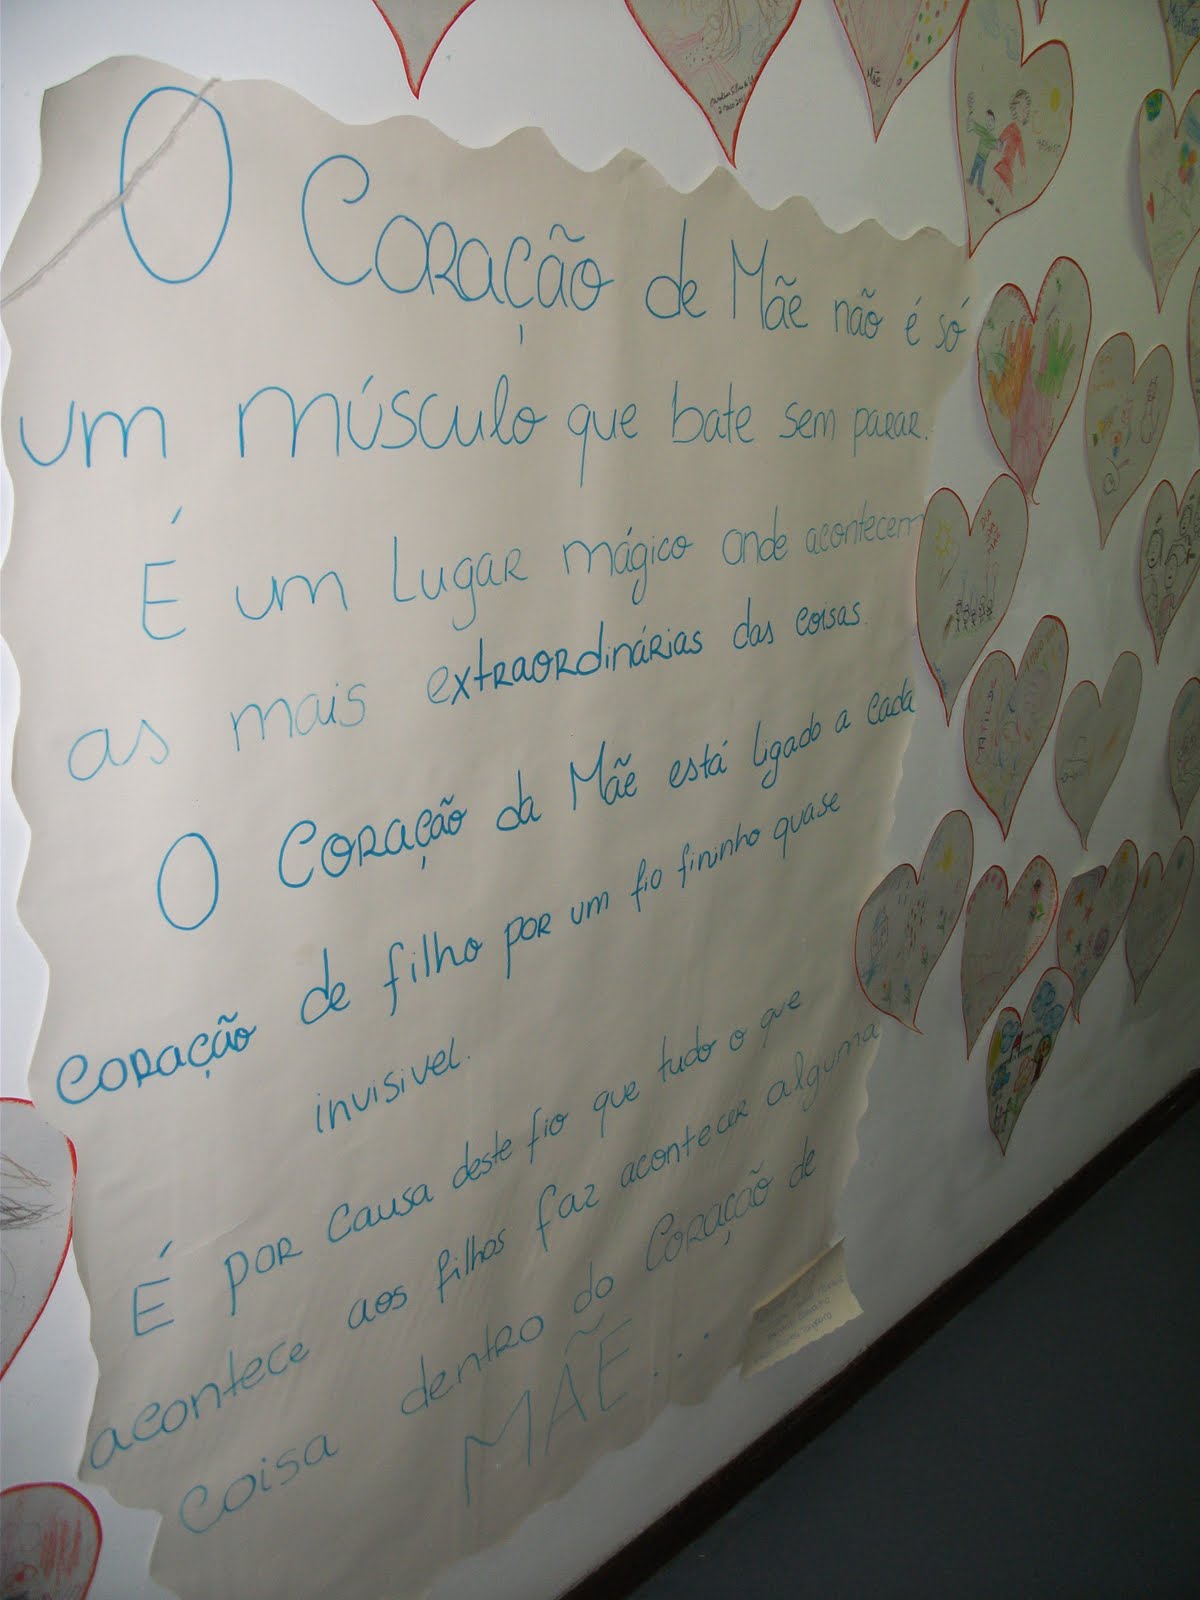 O Coração de Mãe não é só
um músculo que bate sem parar.
É um lugar mágico onde acontecem
as mais extraordinárias das coisas.
O Coração da Mãe está ligado a cada
coração de filho por um fio fininho quase
invisivel.
É por causa deste fio que tudo o que
acontece aos filhos faz acontecer alguma
coisa dentro do Coração de
MÃE...
Mãe